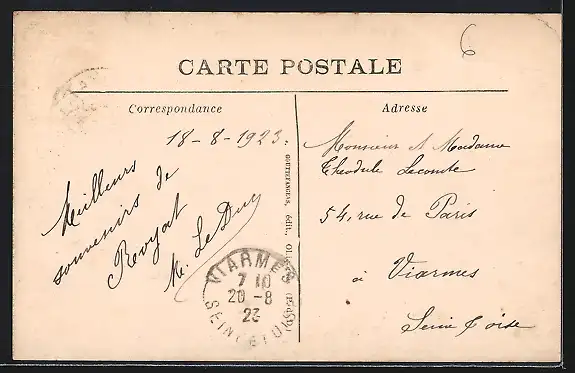 6
CARTE POSTALE
Correspondance
Adresse
18-8-1923.
Meilleurs
souvenirs de
Royat
M. Le Duc
Monsieur et Madame
Théodule Lecomte
54, rue de Paris
à Viarmes
Seine & Oise
GOUTTEFANGEAS, édit.,
VIARMES
7 10
20 - 8
23
SEINE ET OISE